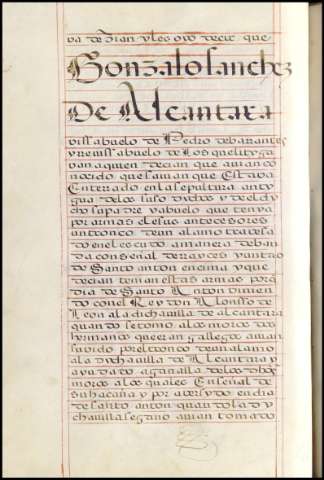 va de dizan y les oyo decir que
Gonzalo sanchez
De Alcantara
viss abuelo de Pedro de barrantes
y reviss abuelo de los que lityga
van a quien decian que avian co
nocido que savian que Estava
Enterrado en la sepultura anty
gua de los suso dychos y de el dy
cho su padre y abuelo que tenya
por armas el e sus antecesores
un tronco de un alamo travesa
do en el escudo a manera de ban
da con señal de rrayces y un tao
de santo anton encima y que
decian tenian estas armas por q
dia de santo Anton vinien
do con el Rey don Alonsso de
Leon a la dicha villa de alcantara
quando se tomo a los moros dos
hermanos que eran gallegos avian
subido por el tronco de un alamo
a la dycha villa de Alcantara y
ayudado a ganalla de los dhos
moros a los quales En señal de
su hacaña y por aver sydo en dia
de santo anton quando la dy
cha villa se gano avian tomado